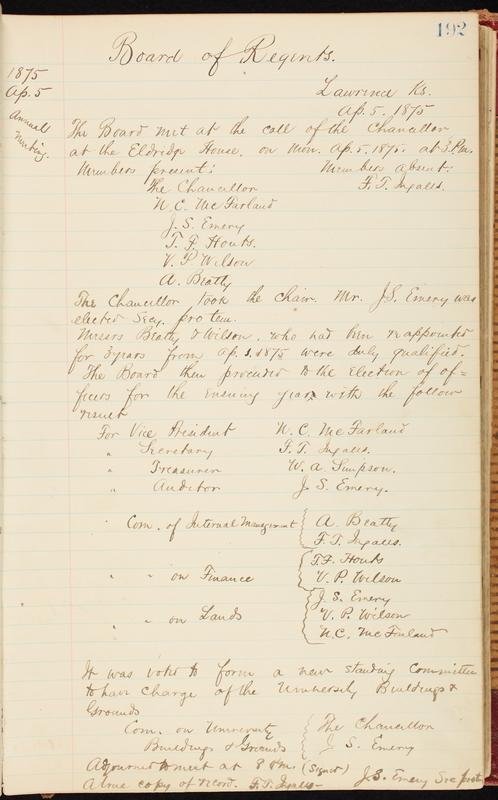 192
Board of Regents.
1875
Ap. 5
Annual
Meeting.
Lawrence Ks.
Ap. 5. 1875
The Board met at the call of the Chancellor
at the Eldridge House, on Mon. Ap. 5. 1875. at 3 P.m.
Members present: Members absent:
The Chancellor F. T. Ingalls.
N. C. McFarland
J. S. Emery
T. F. Houts.
V. P. Wilson
A. Beatty
The Chancellor took the chair. Mr. J. S. Emery was
elected Secy. pro tem.
Messrs Beatty & Wilson, who had been reappointed
for 3 years from Ap. 1. 1875 were duly qualified.
The Board then proceeded to the election of of=
ficers for the ensuing year with the follow
result
For Vice President N. C. McFarland
" Secretary F. T. Ingalls.
" Treasurer W. A. Simpson.
" Auditor J. S. Emery.
Com. of Internal Management A. Beatty
F. T. Ingalls.
" " on Finance T. F. Houts
V. P. Wilson
" " on Lands J. S. Emery
V. P. Wilson
N. C. McFarland
It was voted to form a new standing committee
to have charge of the University Buildings &
Grounds
Com. on University The Chancellor
Buildings & Grounds J. S. Emery
Adjourned to meet at 8 P.m. (Signed) J. S. Emery Sec pro t
A true copy of record. F. T. Ingalls-